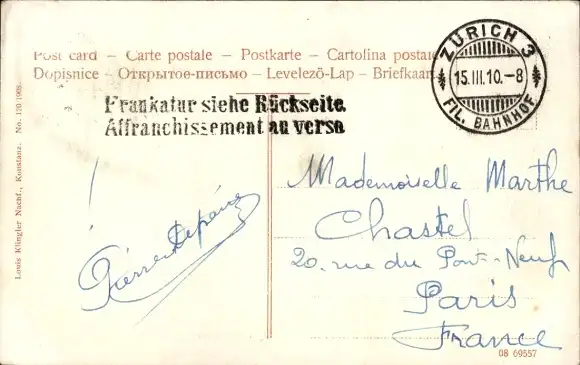 Post card – Carte postale – Postkarte – Cartolina postale
Dopisnice – Открытое-письмо – Levelező-Lap – Briefkaart
ZÜRICH 3
15.III.10.–8
FIL. BAHNHOF
Frankatur siehe Rückseite.
Affranchissement au verso
Louis Klingler Nachf., Konstanz. No. 120 1908.
Pierre
Mademoiselle Marthe
Chastel
20. rue du Pont-Neuf
Paris
France
08 69557